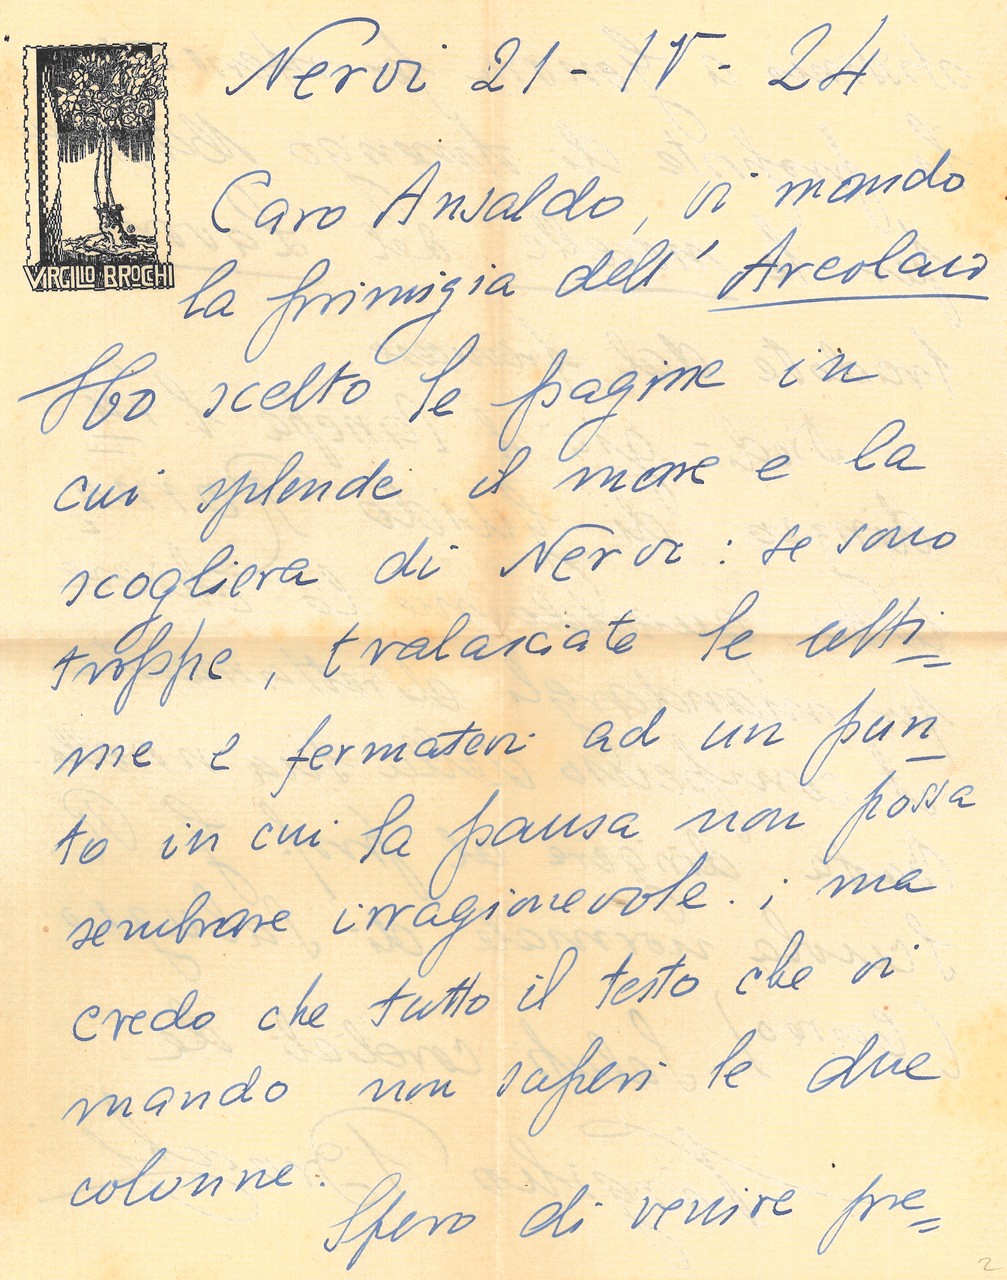 VIRGILIO BROCCHI
Nervi 21 - IV - 24
Caro Ansaldo, vi mando
la primizia dell' Arcolaio
Ho scelto le pagine in
cui splende il mare e la
scogliera di Nervi : se sono
troppe, tralasciate le ulti=
me e fermatevi ad un pun=
to in cui la pausa non possa
sembrare irragionevole. ; ma
credo che tutto il testo che vi
mando non superi le due
colonne.
Spero di venire pre=
2